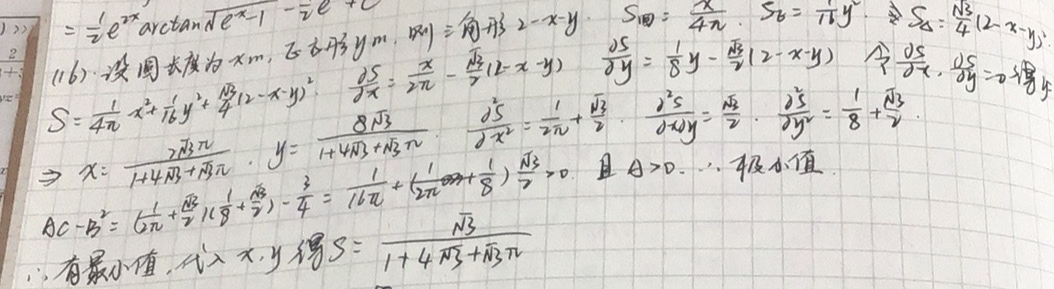 = 1/2 e^{2x} arctan√(e^x-1) - 1/2 e
(16). 设圆长度为 x m, 正方形 y m, 则三角形 2-x-y. S圆 = x/4π. S正 = 1/16 y². S△ = √3/4 (2-x-y)².
S = 1/4π x² + 1/16 y² + √3/4 (2-x-y)². ∂S/∂x = x/2π - √3/2 (2-x-y) ∂S/∂y = 1/8 y - √3/2 (2-x-y) 令 ∂S/∂x, ∂S/∂y = 0 得
⇒ x = 2√3π/(1+4√3+√3π). y = 8√3/(1+4√3+√3π). ∂²S/∂x² = 1/2π + √3/2. ∂²S/∂x∂y = √3/2. ∂²S/∂y² = 1/8 + √3/2.
AC-B² = (1/2π + √3/2)(1/8 + √3/2) - 3/4 = 1/16π + (1/2π + 1/8) √3/2 > 0. 且 A>0. ∴ 极小值.
∴ 有最小值, 代入 x, y 得 S = √3/(1+4√3+√3π)